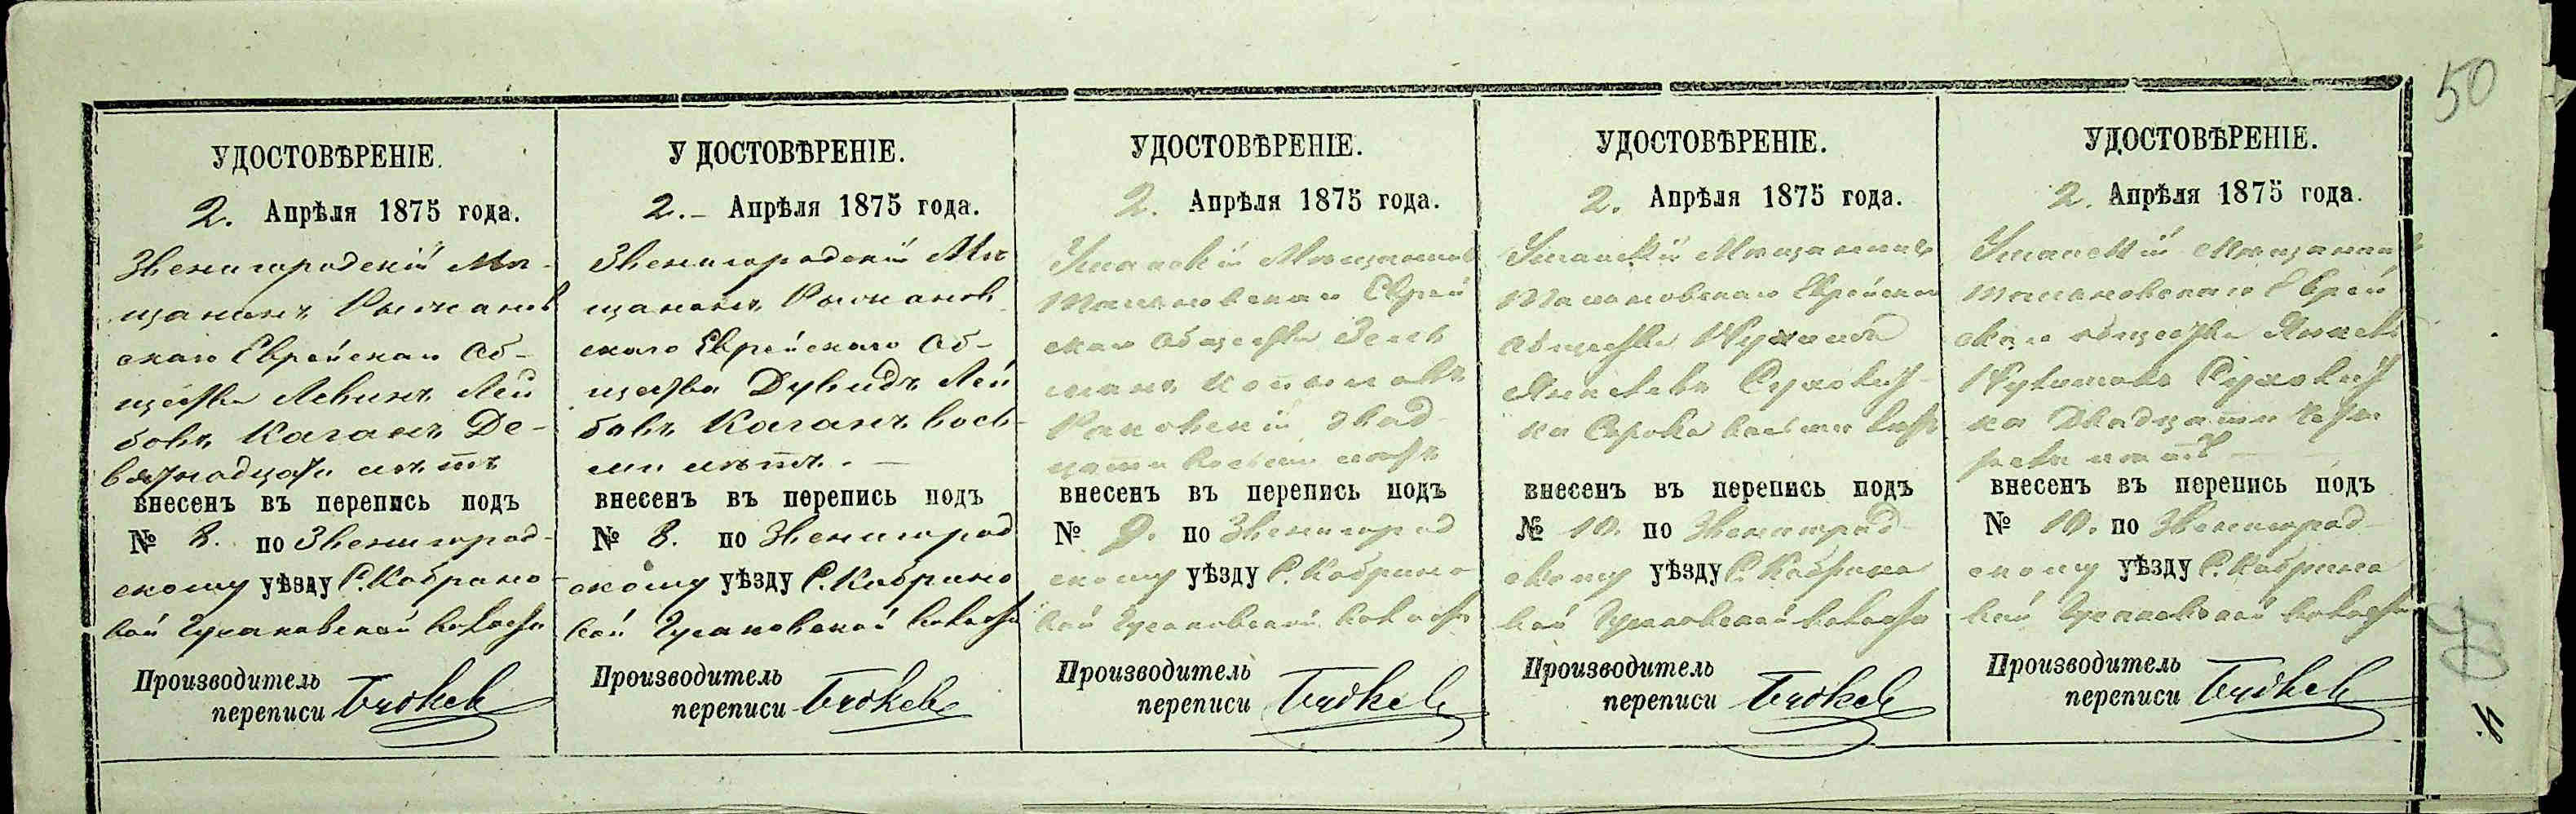 50
УДОСТОВѢРЕНІЕ.
2. Апрѣля 1875 года.
Звенигородскій Мѣ-
щанинъ Рыжанов
скаго Еврейскаго Об-
щества Левикъ Лей
бовъ Каганъ Де-
вятнадцати лѣтъ
внесенъ въ перепись подъ
№ 8. по Звенигород-
скому уѣзду С. Кобрино-
вой Гусаковской волости
Производитель
переписи
УДОСТОВѢРЕНІЕ.
2.- Апрѣля 1875 года.
Звенигородскій Мѣ
щанинъ Рыжанов
скаго Еврейскаго Об-
щества Дувидъ Лей
бовъ Каганъ вось-
ми лѣтъ. —
внесенъ въ перепись подъ
№ 8. по Звенигород
скому уѣзду С. Кобрино
вой Гусаковской волости
Производитель
переписи
УДОСТОВѢРЕНІЕ.
2. Апрѣля 1875 года.
Уманскій Мѣщанинъ
Тальновскаго Еврей
скаго общества Зель
манъ
Раковскій двад
цати восьми лѣтъ
внесенъ въ перепись подъ
№ 9. по Звенигород
скому уѣзду С. Кобрино
вой Гусаковской волости
Производитель
переписи
УДОСТОВѢРЕНІЕ.
2. Апрѣля 1875 года.
Уманскій Мѣщанинъ
Тальновскаго Еврейскаго
общества
Сорока восьми лѣтъ
внесенъ въ перепись подъ
№ 10. по Звенигород
скому уѣзду С. Кобрино
вой Гусаковской волости
Производитель
переписи
УДОСТОВѢРЕНІЕ.
2. Апрѣля 1875 года.
Уманскій Мѣщанинъ
Тальновскаго Еврей
скаго общества
Двадцати четы
рехъ лѣтъ —
внесенъ въ перепись подъ
№ 10. по Звенигород
скому уѣзду С. Кобрино
вой Гусаковской волости
Производитель
переписи